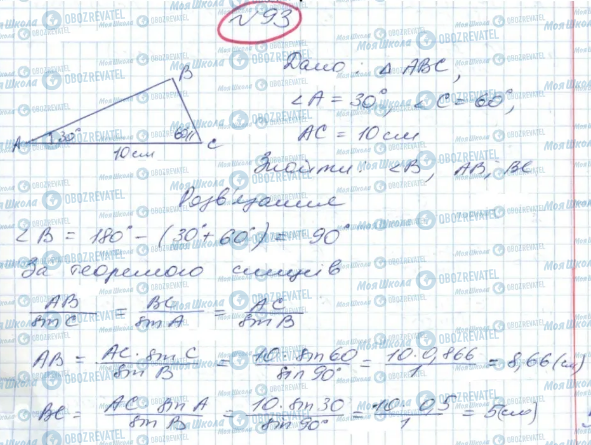 №93
Дано: △ ABC,
∠A = 30°, ∠C = 60°,
AC = 10 см
Знайти: ∠B, AB, BC
B
A 30° 60° C
10 см
Розв'язання
∠B = 180° - (30° + 60°) = 90°
За теоремою синусів
AB/sin C = BC/sin A = AC/sin B
AB = AC · sin C/sin B = 10 · sin 60/sin 90° = 10 · 0,866/1 = 8,66 (см)
BC = AC sin A/sin B = 10 · sin 30/sin 90° = 10 · 0,5/1 = 5 (см)
Моя Школа
OBOZREVATEL